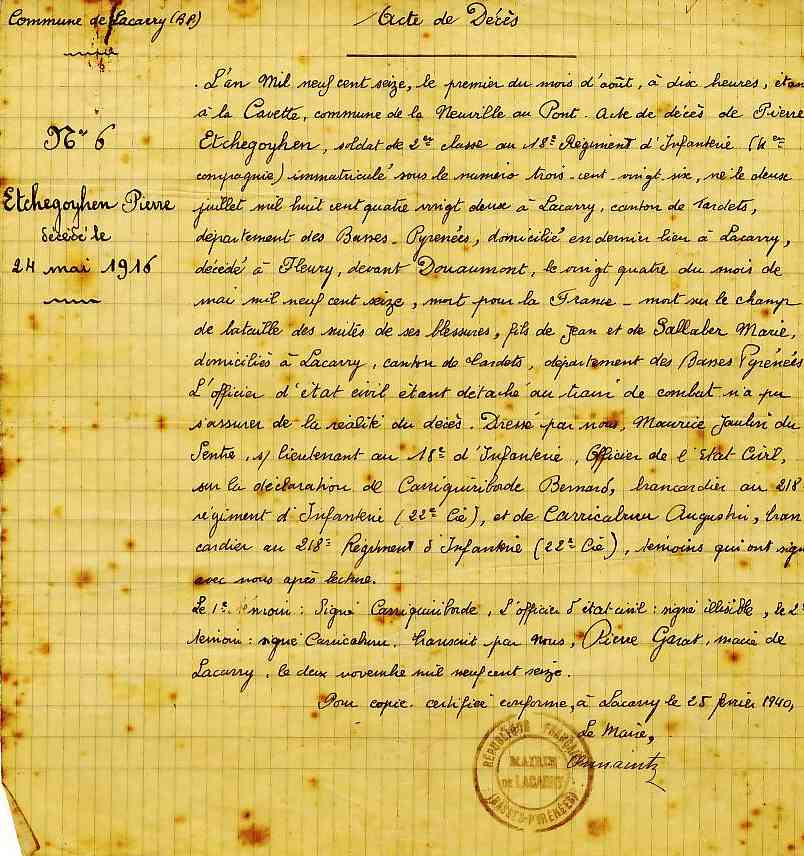 Commune de Lacarry (BP)
Acte de Décès
N° 6
Etchegoyhen Pierre
décédé le
24 mai 1916
L'an Mil neuf cent seize, le premier du mois d'août, à dix heures, étan
à la Cavette, commune de la Neuville au Pont. Acte de décès de Pierre
Etchegoyhen, soldat de 2ème classe au 18e Régiment d'Infanterie (4ème
compagnie) immatriculé sous le numéro trois-cent-vingt-six, né le deux
juillet mil huit cent quatre vingt deux à Lacarry, canton de Tardets,
département des Basses-Pyrénées, domicilié en dernier lieu à Lacarry,
décédé à Fleury, devant Douaumont, le vingt quatre du mois de
mai mil neuf cent seize, mort pour la France - mort sur le champ
de bataille des suites de ses blessures, fils de Jean et de Sallaber Marie,
domiciliés à Lacarry, canton de Tardets, département des Basses Pyrénées
L'officier d'état civil étant détaché au train de combat n'a pu
s'assurer de la réalité du décès. Dressé par nous, Maurice Jaulin du
Sentre, s/ lieutenant au 18e d'Infanterie, Officier de l'Etat Civil,
sur la déclaration de Carriquiriborde Bernard, brancardier au 218
régiment d'Infanterie (22e Cie), et de Carricaburu Augustin, bran
cardier au 218e Régiment d'Infanterie (22e Cie), témoins qui ont signé
avec nous après lecture.
Le 1er témoin: Signé Carriquiriborde, L'officier d'état civil: signé illisible, le 2e
témoin: signé Carricaburu. Transcrit par nous, Pierre Garat, maire de
Lacarry, le deux novembre mil neuf cent seize.
Pour copie certifiée conforme, à Lacarry le 25 février 1940,
Le Maire,
RÉPUBLIQUE FRANÇAISE
MAIRIE
de LACARRY
(BASSES-PYRÉNÉES)